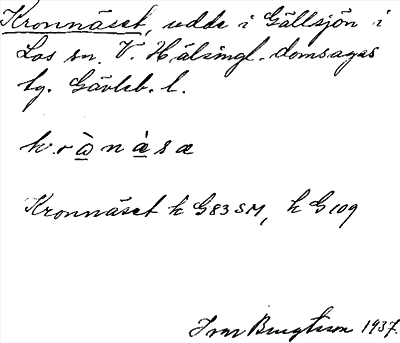 Kronnäset, udde i Gällsjön i
Los sn. V. Hälsingl. domsagas
tg. Gävleb. l.
Kronnäset k G83SM, k G109
Ivar Bengtsson 1937.